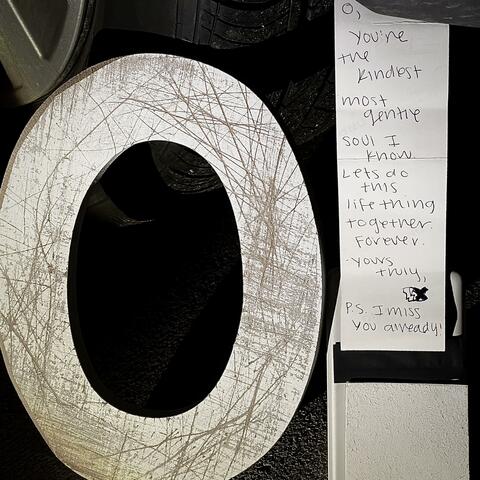 O
O,
You're
the
kindest
most
gentle
soul I
know.
Lets do
this
life thing
together.
Forever.
-yours
truly,
P.S. I miss
you already!